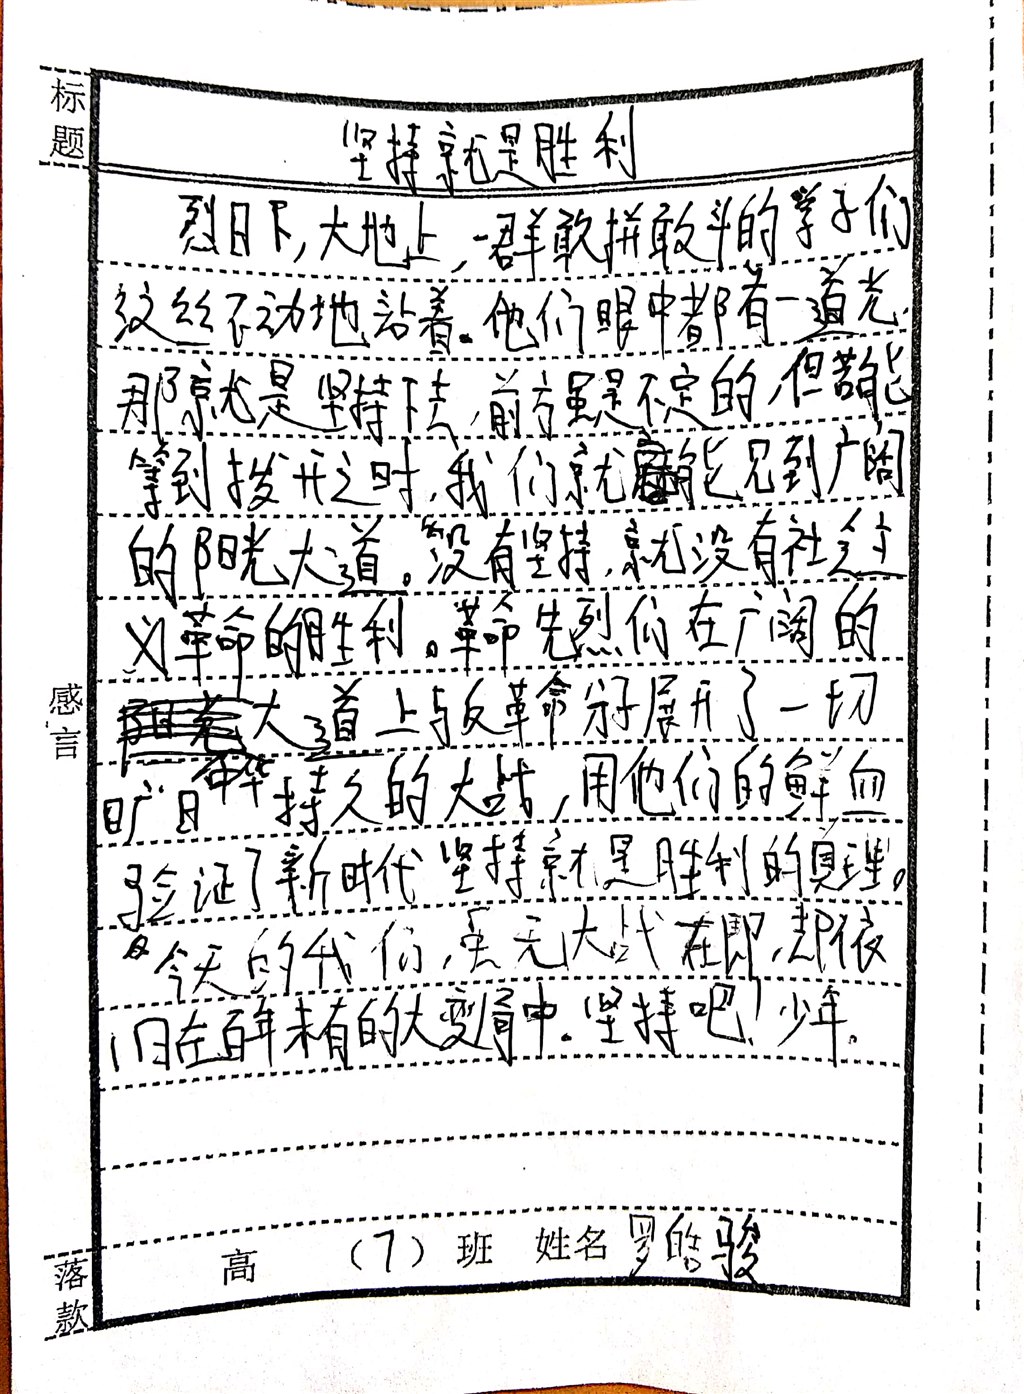 标题
坚持就是胜利
烈日下,大地上,一群敢拼敢斗的学子们
纹丝不动地站着。他们眼中都有一道光.
那就是坚持下去,前方虽是不定的,但若能
等到拨开之时,我们就能见到广阔
的阳光大道。没有坚持,就没有社会主
义革命的胜利。革命先烈们在广阔的
大道上与反革命分子展开了一切
旷日持久的大战,用他们的鲜血
验证了新时代坚持就是胜利的真理。
今天的我们,虽无大战在即,却依
旧在百年未有的大变局中.坚持吧!少年.
感言
落款
高 (7) 班 姓名 罗皓骏